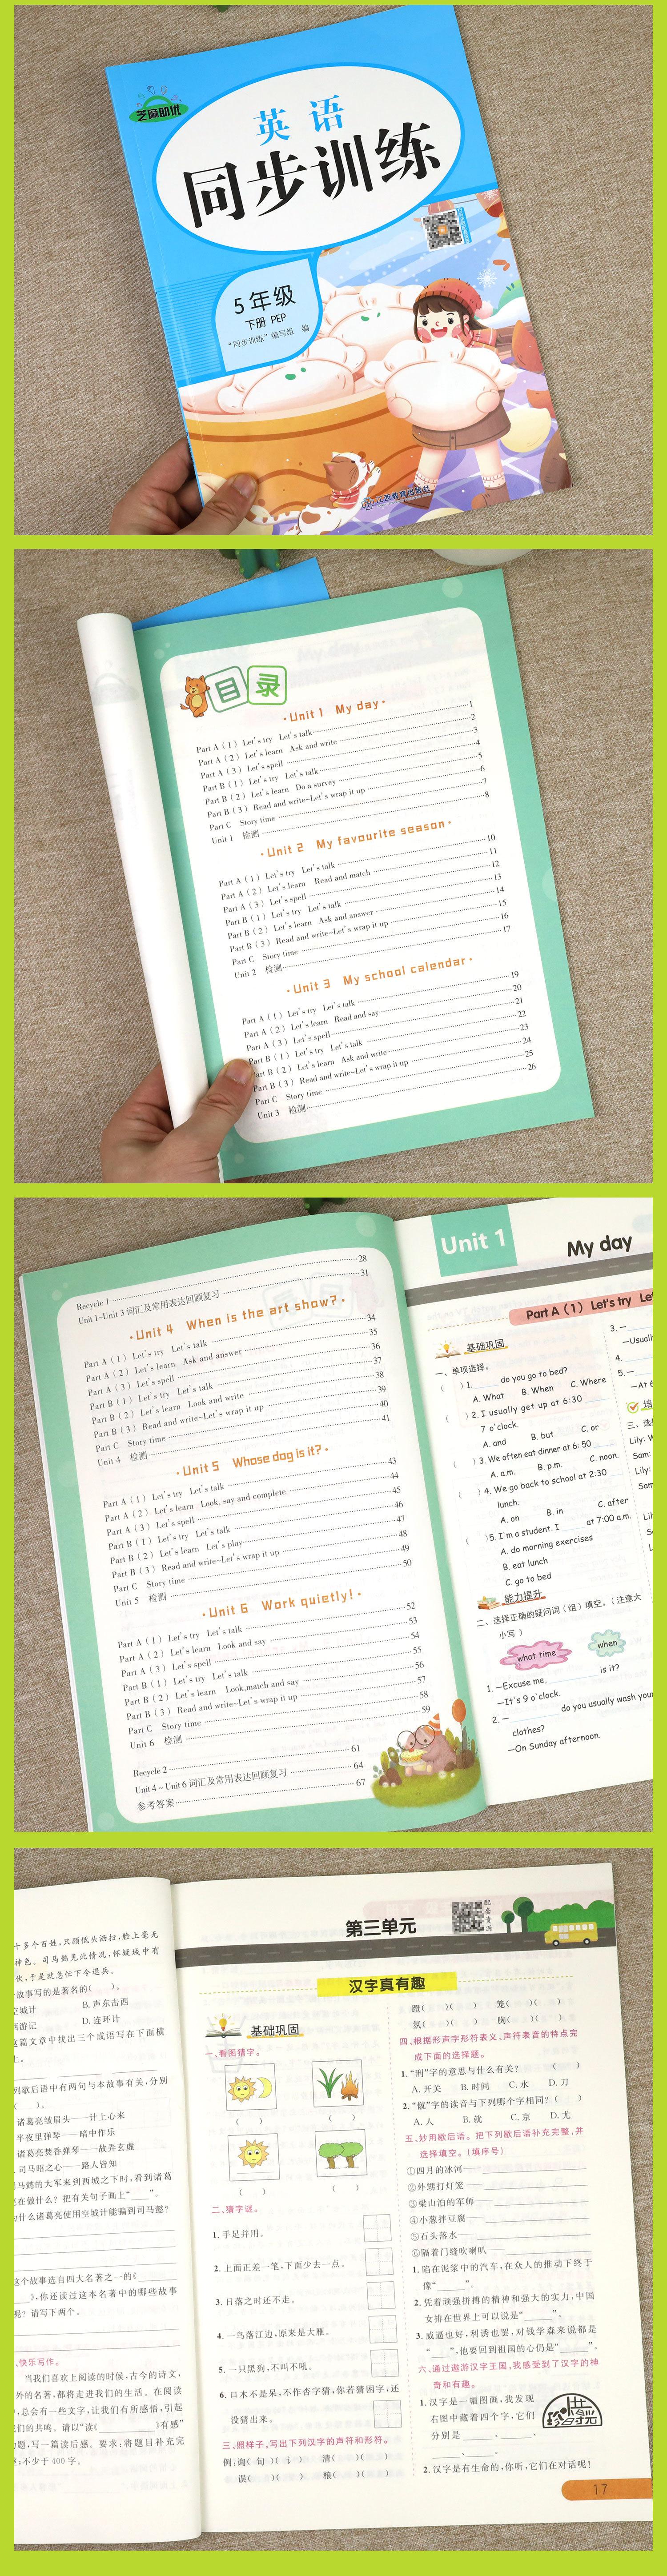 芝麻助优
英语
同步训练
5年级
下册 PEP
“同步训练”编写组 编
江西教育出版社
目录
·Unit 1 My day·
Part A (1) Let's try Let's talk 1
Part A (2) Let's learn Ask and write 2
Part A (3) Let's spell 3
Part B (1) Let's try Let's talk 4
Part B (2) Let's learn Do a survey 5
Part B (3) Read and write~Let's wrap it up 6
Part C Story time 7
Unit 1 检测 8
·Unit 2 My favourite season·
Part A (1) Let's try Let's talk 10
Part A (2) Let's learn Read and match 11
Part A (3) Let's spell 12
Part B (1) Let's try Let's talk 13
Part B (2) Let's learn Ask and answer 14
Part B (3) Read and write~Let's wrap it up 15
Part C Story time 16
Unit 2 检测 17
·Unit 3 My school calendar·
Part A (1) Let's try Let's talk 19
Part A (2) Let's learn Read and say 20
Part A (3) Let's spell 21
Part B (1) Let's try Let's talk 22
Part B (2) Let's learn Ask and write 23
Part B (3) Read and write~Let's wrap it up 24
Part C Story time 25
Unit 3 检测 26
Recycle 1 28
Unit 1~Unit 3 词汇及常用表达回顾复习 31
·Unit 4 When is the art show?·
Part A (1) Let's try Let's talk 34
Part A (2) Let's learn Ask and answer 35
Part A (3) Let's spell 36
Part B (1) Let's try Let's talk 37
Part B (2) Let's learn Look and write 38
Part B (3) Read and write~Let's wrap it up 39
Part C Story time 40
Unit 4 检测 41
·Unit 5 Whose dog is it?·
Part A (1) Let's try Let's talk 43
Part A (2) Let's learn Look, say and complete 44
Part A (3) Let's spell 45
Part B (1) Let's try Let's talk 46
Part B (2) Let's learn Let's play 47
Part B (3) Read and write~Let's wrap it up 48
Part C Story time 49
Unit 5 检测 50
·Unit 6 Work quietly!·
Part A (1) Let's try Let's talk 52
Part A (2) Let's learn Look and say 53
Part A (3) Let's spell 54
Part B (1) Let's try Let's talk 55
Part B (2) Let's learn Look,match and say 56
Part B (3) Read and write~Let's wrap it up 57
Part C Story time 58
Unit 6 检测 59
Recycle 2 61
Unit 4~Unit 6 词汇及常用表达回顾复习 64
参考答案 67
Unit 1 My day
Part A (1) Let's try Le
基础巩固
一、单项选择。
( )1. ____ do you go to bed?
A. What B. When C. Where
( )2. I usually get up at 6:30 ____
7 o'clock.
A. and B. but C. or
( )3. We often eat dinner at 6:50 ____
A. a.m. B. p.m. C. noon.
( )4. We go back to school at 2:30 ____
lunch.
A. on B. in C. after
( )5. I'm a student. I ____ at 7:00 a.m.
A. do morning exercises
B. eat lunch
C. go to bed
能力提升
二、选择正确的疑问词（组）填空。（注意大
小写）
what time when
1. —Excuse me, ____ is it?
—It's 9 o'clock.
2. — ____ do you usually wash your
clothes?
—On Sunday afternoon.
3. —
—Usuall
4.
5. —
—At 6
三、选
Lily: W
Sam:
Lily:
Sam
十多个百姓，只顾低头洒扫，脸上毫无
神色。司马懿见此情况，怀疑城中有
伏，于是就急忙下令退兵。
故事写的是著名的( )。
空城计 B. 声东击西
西游记 D. 连环计
这篇文章中找出三个成语写在下面横
上。
列歇后语中有两句与本故事有关，分别
( )。
诸葛亮皱眉头——计上心来
半夜里弹琴——暗中作乐
诸葛亮焚香弹琴——故弄玄虚
司马昭之心——路人皆知
马懿的大军来到西城之下时，看到诸葛
在做什么？把有关句子画上“____”。
为什么诸葛亮使用空城计能骗到司马懿？
这个故事选自四大名著之一的《____
》，你还读过这本名著中的哪些故事
呢？请写下两个。
、快乐写作。
当我们喜欢上阅读的时候，古今的诗文，
外的名著，都将走进我们的生活。在阅读
，总会有一些文字，让我们有所感悟，引起
们的共鸣。请以“读《____》有感”
题，写一篇读后感。要求：将题目补充完
；不少于400字。
第三单元
配套音频
汉字真有趣
基础巩固
一、看图猜字。
( ) ( )
( ) ( )
二、猜字谜。
1. 手足并用。
2. 上面正差一笔，下面少去一点。
3. 日落之时还不走。
4. 一鸟落江边，原来是大雁。
5. 一只黑狗，不叫不吼。
6. 口木不是呆，不作杏字猜，你若猜困字，还
没猜出来。
三、照样子，写出下列汉字的声符和形符。
例：询( 旬 )( 讠 ) 清( )( )
误( )( ) 粮( )( )
蹬( )( ) 笼( )( )
氨( )( ) 胸( )( )
四、根据形声字形符表义、声符表音的特点完
成下面的选择题。
1. “刑”字的意思与什么有关？ ( )
A. 开关 B. 时间 C. 水 D. 刀
2. “僦”字的读音与下列哪个字相同？( )
A. 人 B. 就 C. 京 D. 尤
五、妙用歇后语。把下列歇后语补充完整，并
选择填空。（填序号）
①四月的冰河——
②外甥打灯笼——
③梁山泊的军师——
④小葱拌豆腐——
⑤石头落水——
⑥隔着门缝吹喇叭——
1. 陷在泥浆中的汽车，在众人的推动下终于
像“____”。
2. 凭着顽强拼搏的精神和强大的实力，中国
女排在世界上可以说是“____”。
3. 威逼也好，利诱也罢，对钱学森来说都是
“____”，他要回到祖国的心仍是“____”。
六、通过遨游汉字王国，我感受到了汉字的神
奇和有趣。
1. 汉字是一幅图画，我发现
右图中藏着四个字，它们
分别是____、____、
____、____。
2. 汉字是有生命的，你听，它们在对话呢！
17